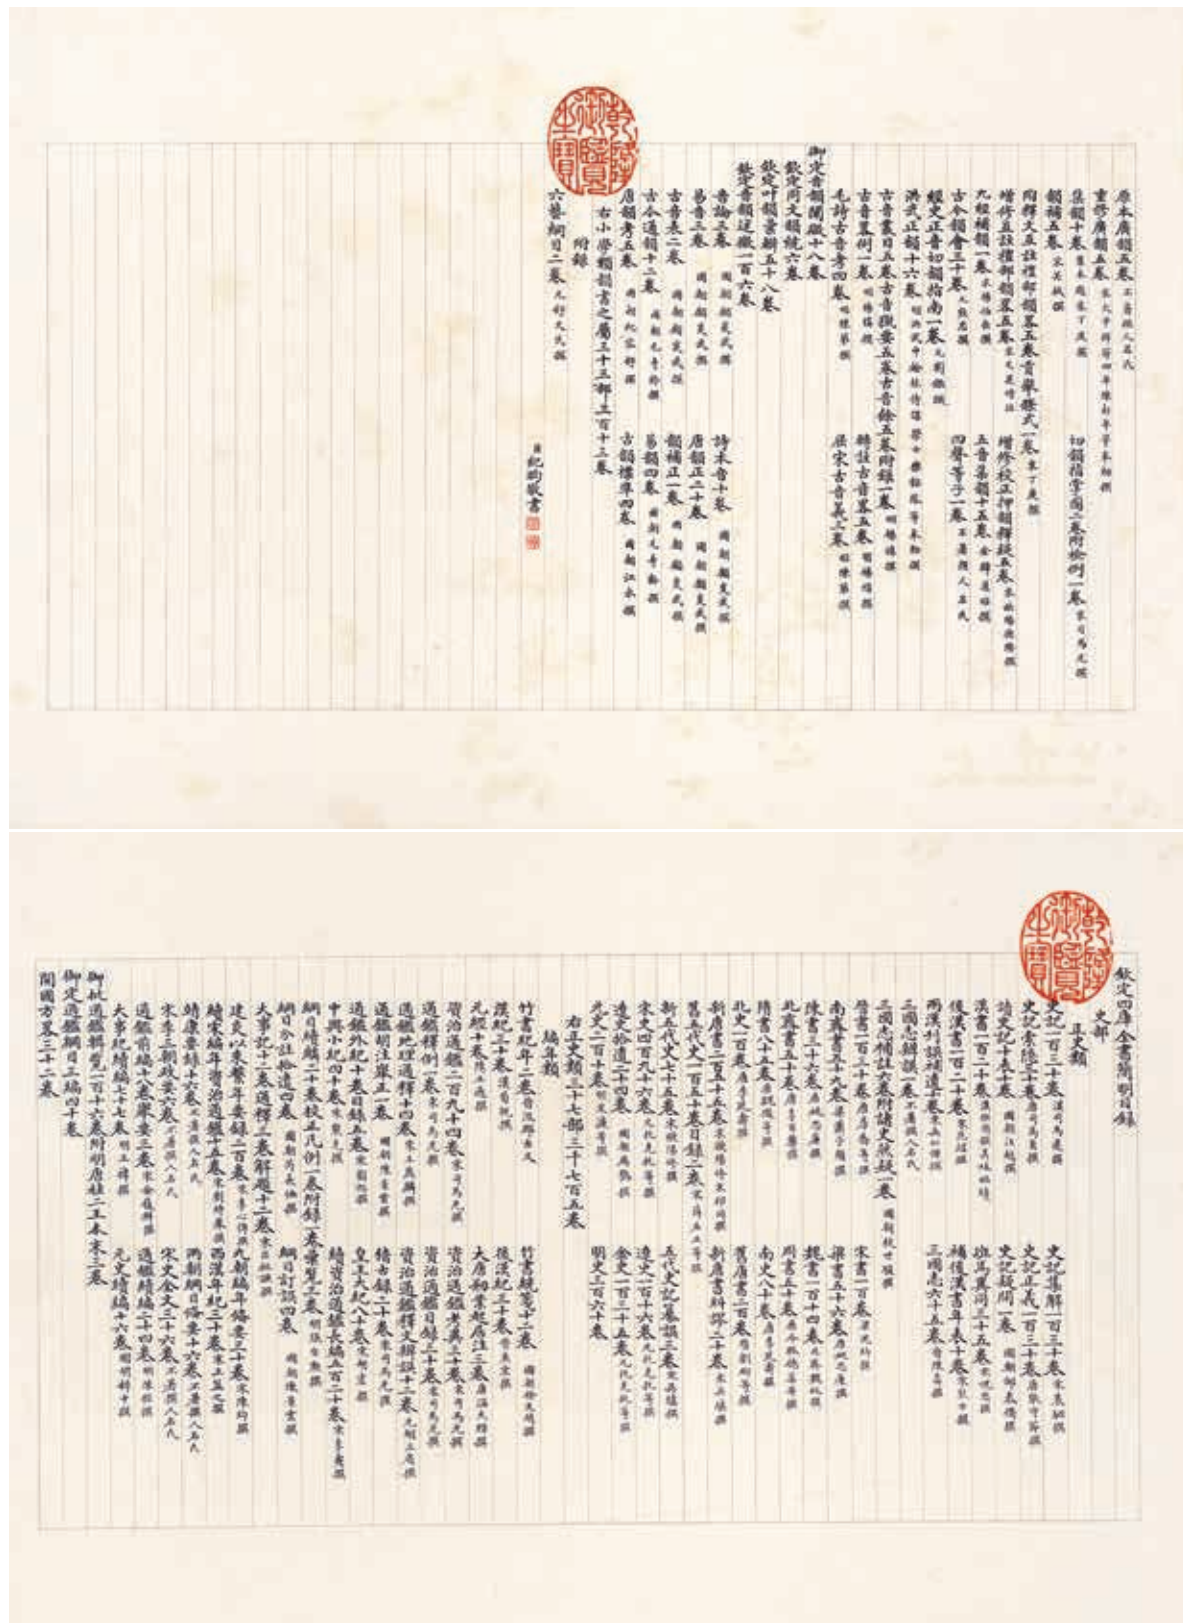 原本廣韻五卷 不著撰人名氏
重修廣韻五卷 宋大中祥符四年陳彭年等奉敕撰
集韻十卷 舊本題宋丁度撰 切韻指掌圖二卷附檢例一卷 宋司馬光撰
韻補五卷 宋吳棫撰
附釋文互註禮部韻畧五卷貢舉條式一卷 宋丁度撰
增修互註禮部韻畧五卷 宋毛晃增註 增修校正押韻釋疑五卷 宋歐陽德隆撰
九經補韻一卷 宋楊伯嵒撰 五音集韻十五卷 金韓道昭撰
古今韻會三十卷 元熊忠撰 四聲等子一卷 不著撰人名氏
經史正音切韻指南一卷 元劉鑑撰
洪武正韻十六卷 明洪武中翰林侍講學士樂韶鳳等奉敕撰
古音叢目五卷古音獵要五卷古音餘五卷附錄一卷 明楊慎撰
古音畧例一卷 明楊慎撰 轉註古音畧五卷 明楊慎撰
毛詩古音考四卷 明陳第撰 屈宋古音義三卷 明陳第撰
御定音韻闡微十八卷
欽定同文韻統六卷
欽定叶韻彙輯五十八卷
欽定音韻述微一百六卷
音論三卷 國朝顧炎武撰 詩本音十卷 國朝顧炎武撰
易音三卷 國朝顧炎武撰 唐韻正二十卷 國朝顧炎武撰
古音表二卷 國朝顧炎武撰 韻補正一卷 國朝顧炎武撰
古今通韻十二卷 國朝毛奇齡撰 易韻四卷 國朝毛奇齡撰
唐韻考五卷 國朝紀容舒撰 古韻標準四卷 國朝江永撰
右小學類韻書之屬三十三部三百十三卷
附錄
六藝綱目二卷 元舒天民撰
臣紀昀敬書
乾隆御覽之寶
欽定四庫全書簡明目錄
史部
正史類
史記一百三十卷 漢司馬遷撰 史記集解一百三十卷 宋裴駰撰
史記索隱三十卷 唐司馬貞撰 史記正義一百三十卷 唐張守節撰
讀史記十表十卷 國朝汪越撰 史記疑問一卷 國朝邵泰衢撰
漢書一百二十卷 漢班固撰其妹班昭續 班馬異同三十五卷 宋倪思撰
後漢書一百二十卷 宋范蔚撰 補後漢書年表十卷 宋熊方撰
兩漢刊誤補遺十卷 宋吳仁傑撰 三國志六十五卷 晉陳壽撰
三國志辨誤一卷 不著撰人名氏
三國志補註六卷附諸史然疑一卷 國朝杭世駿撰
晉書一百三十卷 唐房喬等撰 宋書一百卷 梁沈約撰
南齊書五十九卷 梁蕭子顯撰 梁書五十六卷 唐姚思廉撰
陳書三十六卷 唐姚思廉撰 魏書一百十四卷 北齊魏收撰
北齊書五十卷 唐李百藥撰 周書五十卷 唐令狐德棻等撰
隋書八十五卷 唐魏徵等撰 南史八十卷 唐李延壽撰
北史一百卷 唐李延壽撰 舊唐書二百卷 晉劉昫等撰
新唐書二百五十五卷 宋歐陽修宋祁同撰 新唐書糾謬二十卷 宋吳縝撰
舊五代史一百五十卷目錄二卷 宋薛居正等撰
新五代史七十五卷 宋歐陽修撰 五代史記纂誤三卷 宋吳縝撰
宋史四百九十六卷 元托克托等撰 遼史一百十六卷 元托克托等撰
遼史拾遺二十四卷 國朝厲鶚撰 金史一百三十五卷 元托克托等撰
元史二百十卷 明宋濂等撰 明史三百六十卷
右正史類三十七部三千七百五卷
編年類
竹書紀年二卷 竹書統箋十二卷 國朝徐文靖撰
漢紀三十卷 漢荀悅撰 後漢紀三十卷 晉袁宏撰
元經十卷 隋王通撰 大唐創業起居注三卷 唐溫大雅撰
資治通鑑二百九十四卷 宋司馬光撰 資治通鑑考異三十卷 宋司馬光撰
通鑑釋例一卷 宋司馬光撰 資治通鑑目錄三十卷 宋司馬光撰
通鑑地理通釋十四卷 宋王應麟撰 資治通鑑釋文辨誤十二卷 元胡三省撰
通鑑胡注舉正一卷 國朝陳景雲撰 稽古錄二十卷 宋司馬光撰
通鑑外紀十卷目錄五卷 宋劉恕撰 皇王大紀八十卷 宋胡宏撰
中興小紀四十卷 宋熊克撰 續資治通鑑長編五百二十卷 宋李燾撰
綱目續麟二十卷校正凡例一卷附錄一卷彙覽三卷 明張自勳撰
綱目分註拾遺四卷 國朝芮長恤撰 綱目訂誤四卷 國朝陳景雲撰
大事記十二卷通釋三卷解題十二卷 宋呂祖謙撰
建炎以來繫年要錄二百卷 宋李心傳撰 九朝編年備要三十卷 宋陳均撰
續宋編年資治通鑑十五卷 宋劉時舉撰 西漢年紀三十卷 宋王益之撰
靖康要錄十六卷 不著撰人名氏 兩朝綱目備要十六卷 不著撰人名氏
宋季三朝政要六卷 不著撰人名氏 宋史全文三十六卷 不著撰人名氏
通鑑前編十八卷舉要三卷 宋金履祥撰 通鑑續編二十四卷 明陳桱撰
大事紀續編七十七卷 明王禕撰 元史續編十六卷 明胡粹中撰
御批通鑑輯覽一百十六卷附明唐桂二王本末三卷
御定通鑑綱目三編四十卷
開國方畧三十二卷
乾隆御覽之寶